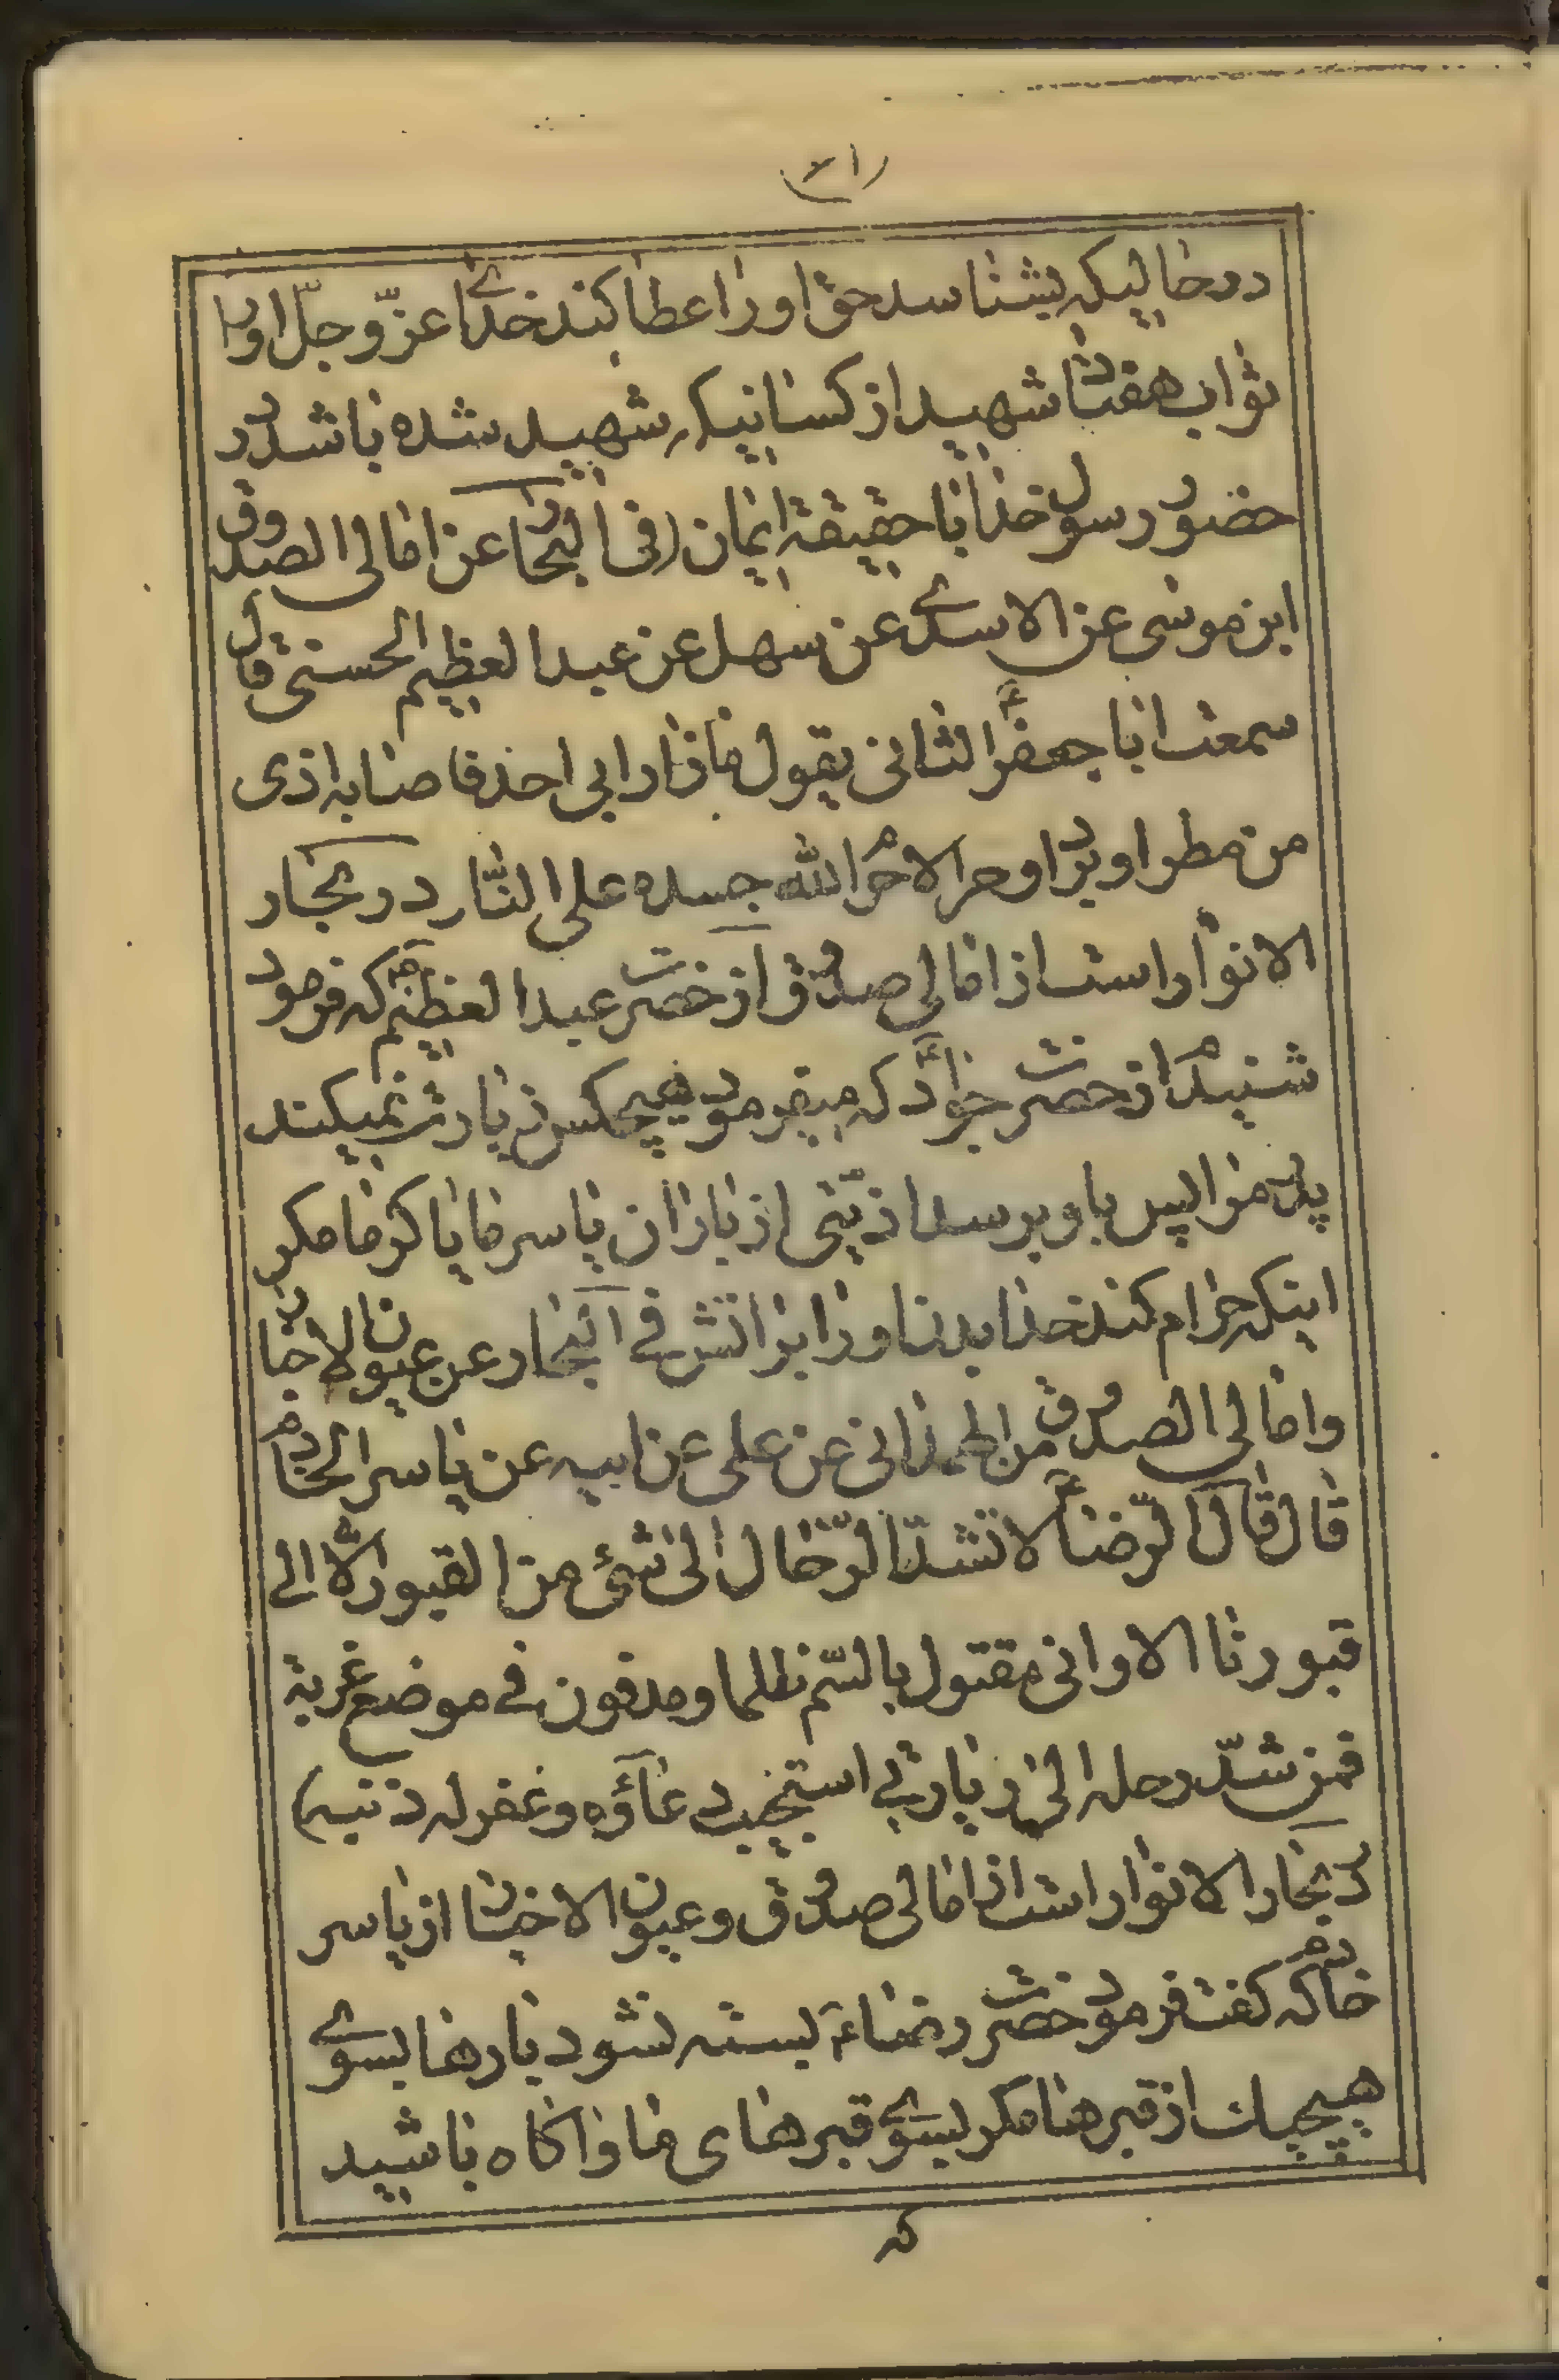 (۳۱)
درحالیکه بشناسد حق او را عطا کند خدای عزّ و جلّ او را
ثواب هفتاد شهید از کسانیکه شهید شده باشد در
حضور رسول خدا با حقیقة ایمان (فی البحار عن امالی الصدوق
ابن موسی عن الاسدی عن سهل عن عبدالعظیم الحسنی قال
سمعت ابا جعفر الثانی ع یقول ما زار ابی احد فاصابه اذی
من مطر او برد او حر الا حرم الله جسده علی النّار در بحار
الانوار است از امالی صدوق از حضرت عبدالعظیم که فرمود
شنیدم از حضرت جواد ع که میفرمود هیچکس زیارت نمیکند
پدر مرا پس باو برسد اذیّتی از باران یا سرما یا گرما مکر
اینکه حرام کند خدا بدن او را بر اتش فی البحار عن عیون الاخبار
و امالی الصدوق من الهمدانی عن علی عن ابیه عن یاسر الخادم
قال قال الرّضا ع لا تشدّ الرّحال الی شئ من القبور الّا الی
قبورنا الا و انی مقتول بالسّم ظلما و مدفون فی موضع غربة
فمن شدّ رحله الی زیارتی استجیب دعاؤه و غفر له ذنبه)
در بحار الانوار است از امالی صدوق و عیون الاخبار از یاسر
خادم که کفت فرمود حضرت رضاء ع بسته نشود بارها بسوی
هیچیک از قبرها مکر بسوی قبرهای ما و آکاه باشید
که